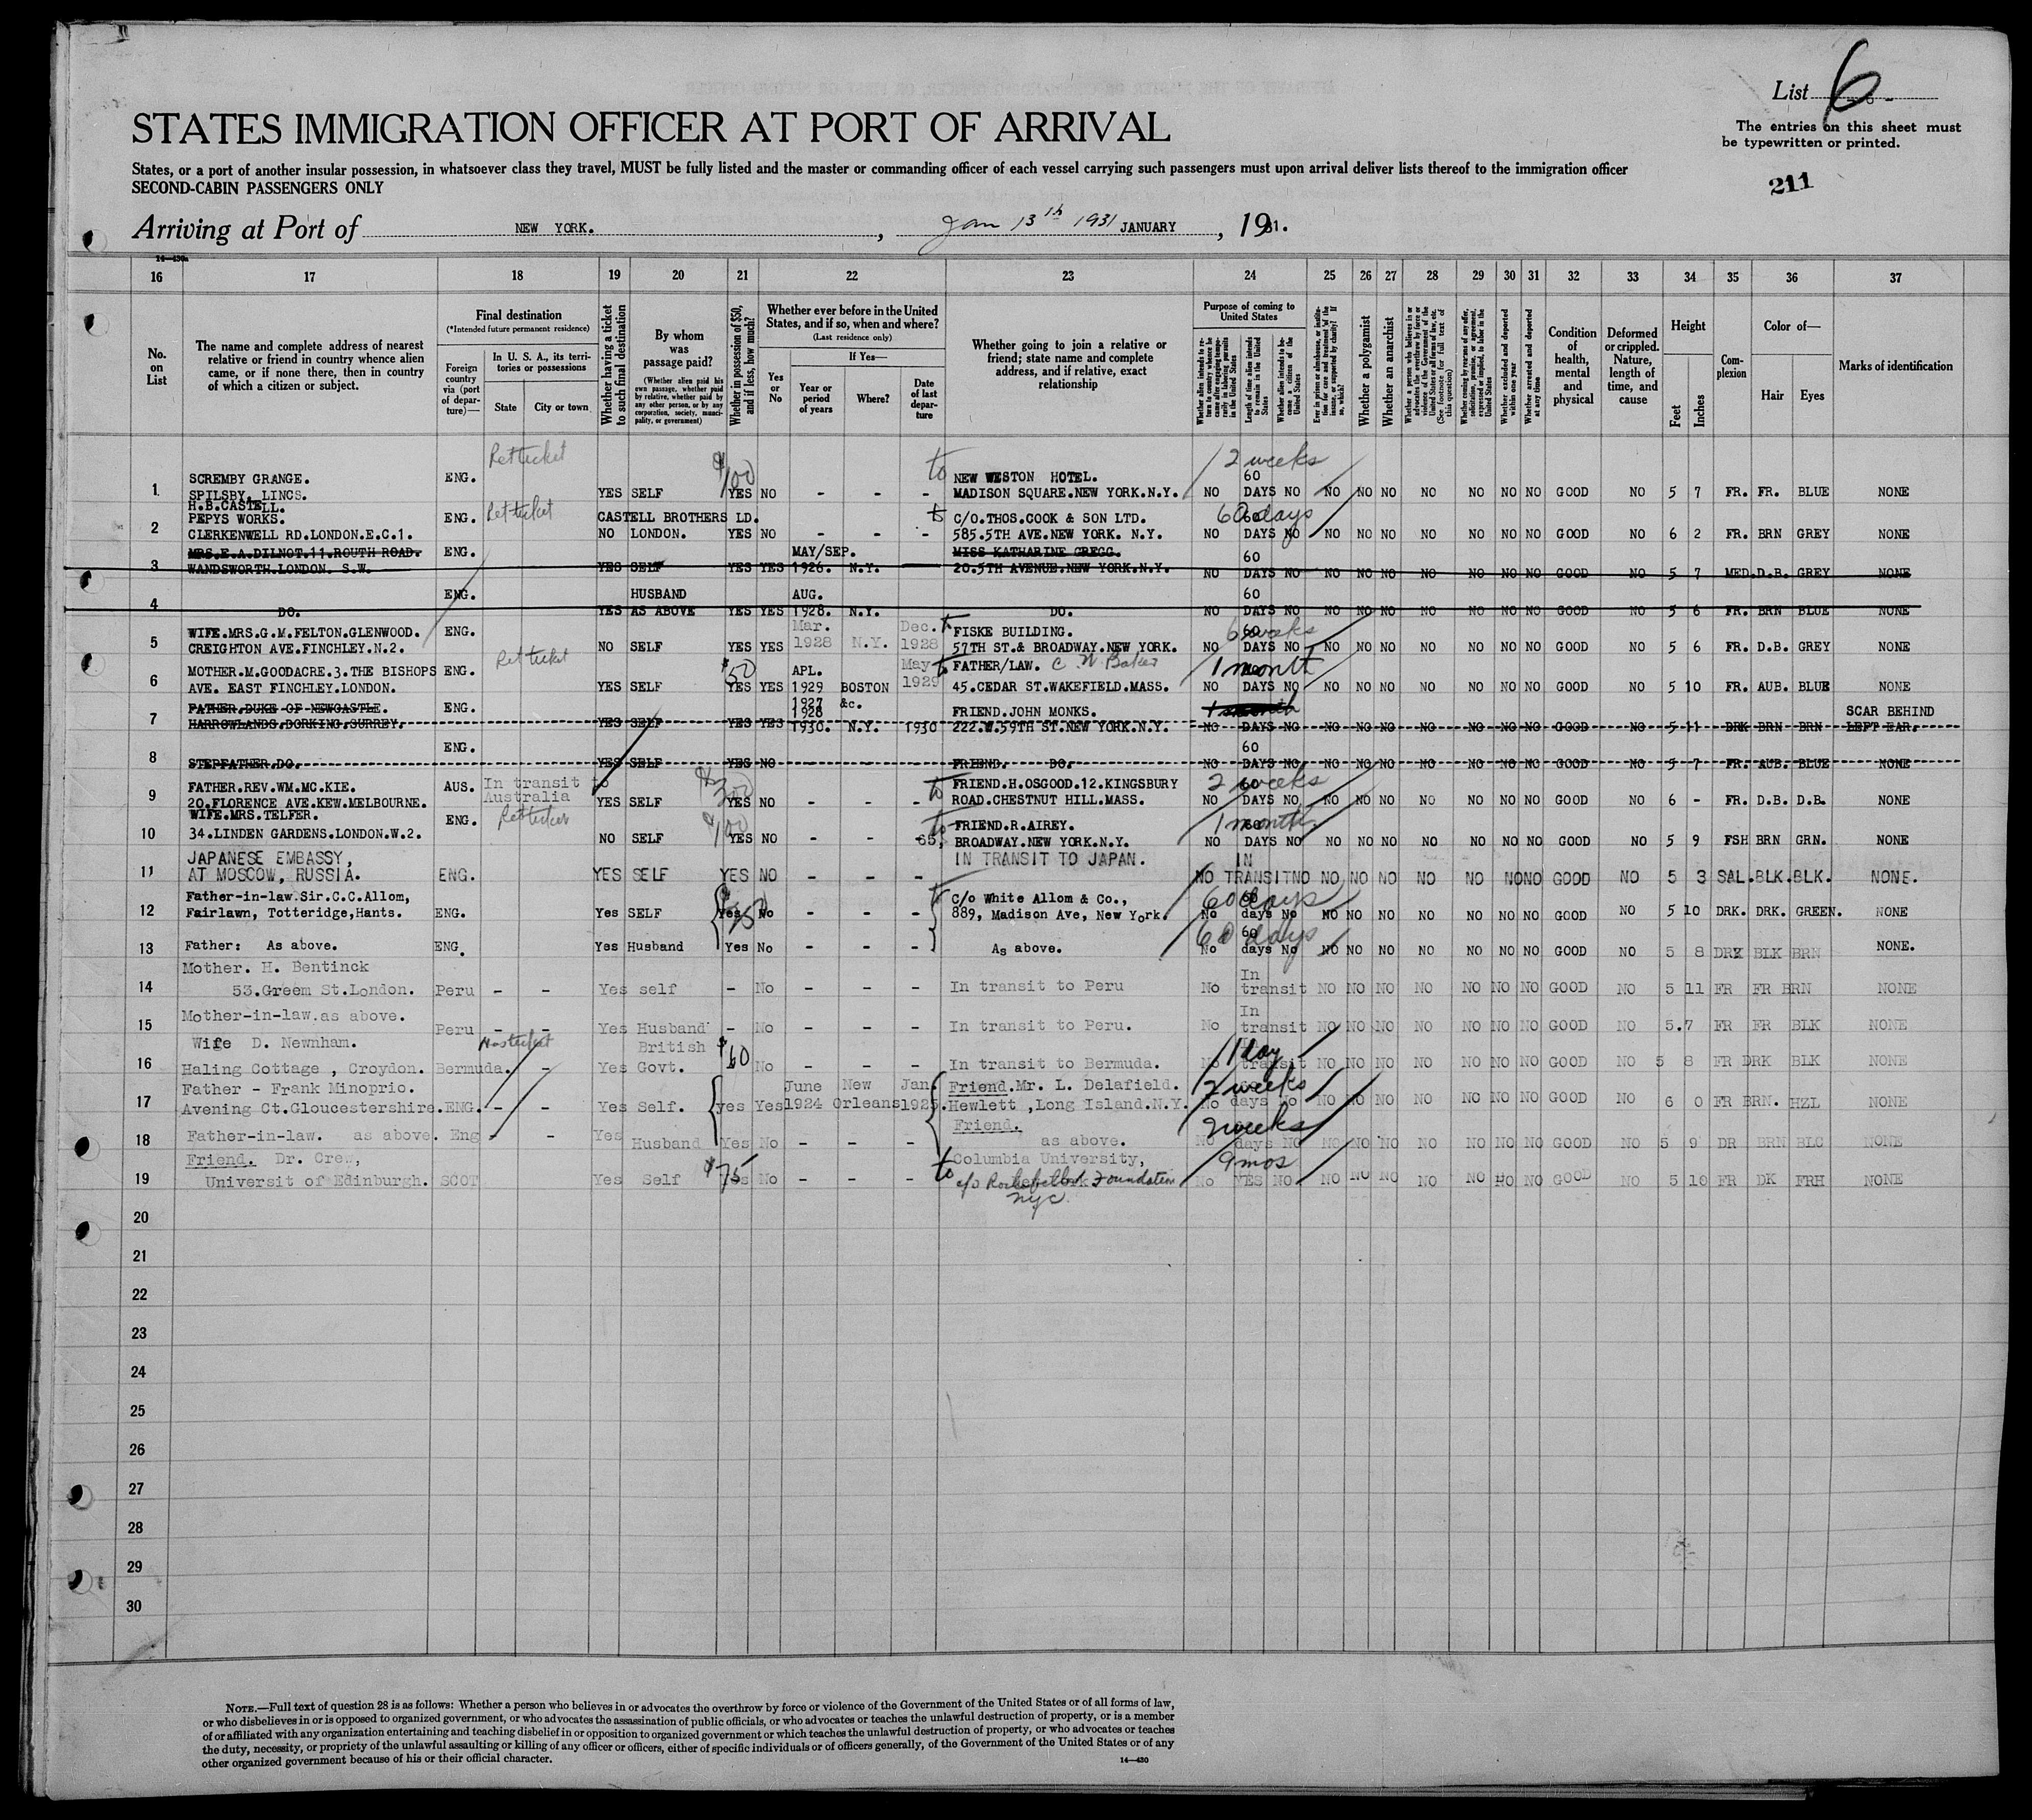 List 6
The entries on this sheet must
be typewritten or printed.
211
STATES IMMIGRATION OFFICER AT PORT OF ARRIVAL
States, or a port of another insular possession, in whatsoever class they travel, MUST be fully listed and the master or commanding officer of each vessel carrying such passengers must upon arrival deliver lists thereof to the immigration officer
SECOND-CABIN PASSENGERS ONLY
Arriving at Port of NEW YORK. , Jan 13th 1931 JANUARY , 1931.
14—430
16 17 18 19 20 21 22 23 24 25 26 27 28 29 30 31 32 33 34 35 36 37
No. on List
The name and complete address of nearest relative or friend in country whence alien came, or if none there, then in country of which a citizen or subject.
Final destination
(*Intended future permanent residence)
Foreign country via (port of departure)—
In U. S. A., its territories or possessions
State City or town
Whether having a ticket to such final destination
By whom was passage paid?
(Whether alien paid his own passage, whether paid by relative, whether paid by any other person, or by any corporation, society, municipality, or government)
Whether in possession of $50, and if less, how much?
Whether ever before in the United States, and if so, when and where?
(Last residence only)
Yes or No
If Yes—
Year or period of years
Where?
Date of last departure
Whether going to join a relative or friend; state name and complete address, and if relative, exact relationship
Purpose of coming to United States
Length of time alien intends to remain in the United States
Whether alien intends to become a citizen of the United States
Whether a polygamist
Whether an anarchist
Whether excluded and deported within one year
Whether arrested and deported at any time
Condition of health, mental and physical
Deformed or crippled. Nature, length of time, and cause
Height
Feet Inches
Complexion
Color of—
Hair Eyes
Marks of identification
1 SCREMBY GRANGE. ENG. Ret ticket $100 to NEW WESTON HOTEL. 2 weeks 60
SPILSBY, LINCS. YES SELF YES NO - - - MADISON SQUARE.NEW YORK.N.Y. NO DAYS NO NO NO NO NO NO NO NO GOOD NO 5 7 FR. FR. BLUE NONE
H.B.CASTELL.
2 PEPYS WORKS. ENG. Ret ticket CASTELL BROTHERS LD. to C/O.THOS.COOK & SON LTD. 60 days 60
CLERKENWELL RD.LONDON.E.C.1. NO LONDON. YES NO - - - 585.5TH AVE.NEW YORK. N.Y. NO DAYS NO NO NO NO NO NO NO NO GOOD NO 6 2 FR. BRN GREY NONE
3 MRS.E.A.DILNOT.11.ROUTH ROAD. ENG. MAY/SEP. MISS KATHARINE GREGG. 60
WANDSWORTH.LONDON. S.W. YES SELF YES YES 1926. N.Y. 20.5TH AVENUE.NEW YORK.N.Y. NO DAYS NO NO NO NO NO NO NO NO GOOD NO 5 7 MED.D.B. GREY NONE
4 ENG. HUSBAND AUG. 60
DO. YES AS ABOVE YES YES 1928. N.Y. DO. NO DAYS NO NO NO NO NO NO NO NO GOOD NO 5 6 FR. BRN BLUE NONE
5 WIFE.MRS.G.M.FELTON.GLENWOOD. ENG. Mar. Dec. to FISKE BUILDING. 6 weeks 60
CREIGHTON AVE.FINCHLEY.N.2. NO SELF YES YES 1928 N.Y. 1928 57TH ST.& BROADWAY.NEW YORK. NO DAYS NO NO NO NO NO NO NO NO GOOD NO 5 6 FR. D.B. GREY NONE
6 MOTHER.M.GOODACRE.3.THE BISHOPS ENG. Ret ticket $50 APL. May to FATHER/LAW. C. W. Baker 1 month
AVE. EAST FINCHLEY.LONDON. YES SELF YES YES 1929 BOSTON 1929 45.CEDAR ST.WAKEFIELD.MASS. NO DAYS NO NO NO NO NO NO NO NO GOOD NO 5 10 FR. AUB. BLUE NONE
7 FATHER.DUKE OF NEWCASTLE. ENG. 1927 1928 &c. FRIEND.JOHN MONKS. 1 month SCAR BEHIND
HARROWLANDS.DORKING.SURREY. YES SELF YES YES 1930. N.Y. 1930 222.W.59TH ST.NEW YORK.N.Y. NO DAYS NO NO NO NO NO NO NO NO GOOD NO 5 11 DRK BRN BRN LEFT EAR.
8 ENG. 60
STEPFATHER.DO. YES SELF YES NO - - - FRIEND. DO. NO DAYS NO NO NO NO NO NO NO NO GOOD NO 5 7 FR. AUB. BLUE NONE
9 FATHER.REV.WM.MC.KIE. AUS. In transit to Australia $300 to FRIEND.H.OSGOOD.12.KINGSBURY 2 weeks 60
20.FLORENCE AVE.KEW.MELBOURNE. YES SELF YES NO - - - ROAD.CHESTNUT HILL.MASS. NO DAYS NO NO NO NO NO NO NO NO GOOD NO 6 - FR. D.B. D.B. NONE
10 WIFE.MRS.TELFER. ENG. Ret ticket $100 to FRIEND.R.AIREY. 1 month 60
34.LINDEN GARDENS.LONDON.W.2. NO SELF YES NO - - 65, BROADWAY.NEW YORK.N.Y. NO DAYS NO NO NO NO NO NO NO NO GOOD NO 5 9 FSH BRN GRN. NONE
11 JAPANESE EMBASSY, IN TRANSIT TO JAPAN. IN
AT MOSCOW, RUSSIA. ENG. YES SELF YES NO - - - NO TRANSIT NO NO NO NO NO NO NO NO GOOD NO 5 3 SAL.BLK.BLK. NONE.
12 Father-in-law.Sir.C.C.Allom, to c/o White Allom & Co., 60 days 60
Fairlawn, Totteridge,Hants. ENG. Yes SELF Yes No - - - 889, Madison Ave, New York. No days No NO NO NO NO NO NO NO GOOD NO 5 10 DRK. DRK. GREEN. NONE
13 Father: As above. ENG. Yes Husband Yes No - - - As above. 60 days 60 No days No NO NO NO NO NO NO NO GOOD NO 5 8 DRK BLK BRN NONE.
14 Mother. H. Bentinck In
53.Greem St.London. Peru - - Yes self - No - - - In transit to Peru No transit NO NO NO NO NO NO NO GOOD NO 5 11 FR FR BRN NONE
15 Mother-in-law.as above. In
Peru - - Yes Husband - No - - - In transit to Peru. No transit NO NO NO NO NO NO NO GOOD NO 5.7 FR FR BLK NONE
16 Wife D. Newnham. Has ticket British $60 1 day
Haling Cottage , Croydon. Bermuda. - Yes Govt. No - - - In transit to Bermuda. No transit NO NO NO NO NO NO NO GOOD NO 5 8 FR DRK BLK NONE
17 Father - Frank Minoprio. June New Jan. Friend.Mr. L. Delafield. 2 weeks
Avening Ct.Gloucestershire.ENG. - - Yes Self. yes Yes 1924 Orleans 1925. Hewlett ,Long Island.N.Y. No days No NO NO NO NO NO NO NO GOOD NO 6 0 FR BRN. HZL NONE
18 Father-in-law. as above. Eng - - Yes Husband Yes No - - - Friend. as above. 2 weeks No days NO NO NO NO NO NO NO NO GOOD NO 5 9 DR BRN BLC NONE
19 Friend. Dr. Crew, $75 to Columbia University, 9 mos
Universit of Edinburgh. SCOT Yes Self Yes No - - - c/o Rockefeller Foundation No YES NO NO NO NO NO NO NO NO GOOD NO 5 10 FR DK FRH NONE
NYC.
20
21
22
23
24
25
26
27
28
29
30
NOTE.—Full text of question 28 is as follows: Whether a person who believes in or advocates the overthrow by force or violence of the Government of the United States or of all forms of law,
or who disbelieves in or is opposed to organized government, or who advocates the assassination of public officials, or who advocates or teaches the unlawful destruction of property, or is a member
of or affiliated with any organization entertaining and teaching disbelief in or opposition to organized government or which teaches the unlawful destruction of property, or who advocates or teaches
the duty, necessity, or propriety of the unlawful assaulting or killing of any officer or officers, either of specific individuals or of officers generally, of the Government of the United States or of any
other organized government because of his or their official character.
14—430